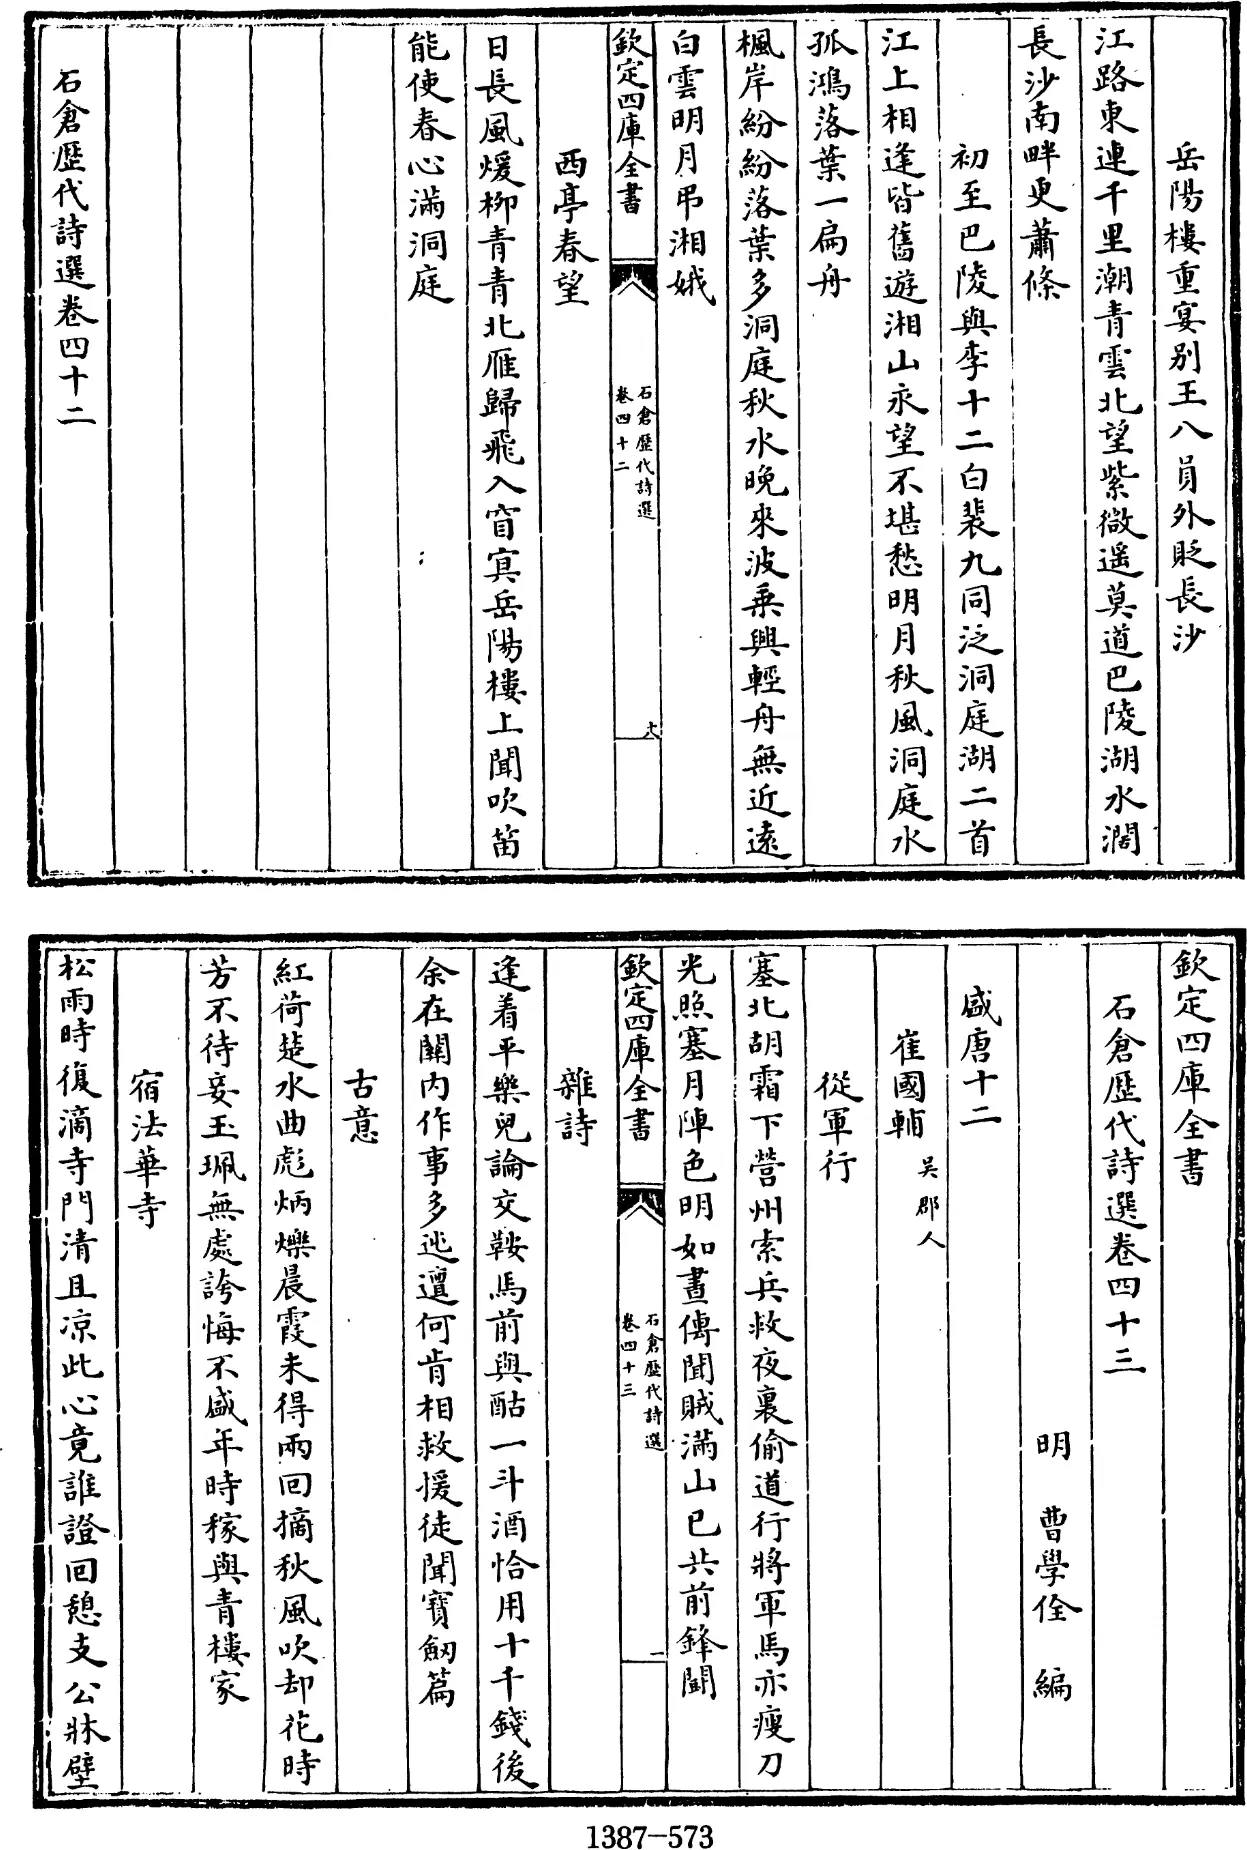 岳陽樓重宴别王八員外貶長沙
江路東連千里潮青雲北望紫微遥莫道巴陵湖水濶
長沙南畔更蕭條
初至巴陵與李十二白裴九同泛洞庭湖二首
江上相逢皆舊遊湘山永望不堪愁明月秋風洞庭水
孤鴻落葉一扁舟
楓岸紛紛落葉多洞庭秋水晚來波乗興輕舟無近遠
白雲明月弔湘娥
欽定四庫全書
石倉歷代詩選
卷四十二
十八
西亭春望
日長風煖柳青青北雁歸飛入窅㝠岳陽樓上聞吹笛
能使春心滿洞庭
石倉歷代詩選卷四十二
欽定四庫全書
石倉歷代詩選卷四十三
明 曹學佺 編
盛唐十二
崔國輔 吴郡人
從軍行
塞北胡霜下營州索兵救夜裏偷道行將軍馬亦瘦刀
光照塞月陣色明如晝傳聞賊滿山已共前鋒鬭
欽定四庫全書
石倉歷代詩選
卷四十三
一
雜詩
逢着平樂兒論交鞍馬前與酤一斗酒恰用十千錢後
余在關内作事多迍邅何肯相救援徒聞寳劒篇
古意
紅荷楚水曲彪炳爍晨霞未得兩回摘秋風吹却花時
芳不待妾玉珮無處誇悔不盛年時稼與青樓家
宿法華寺
松雨時復滴寺門清且凉此心竟誰證回憩支公牀壁
1387-573